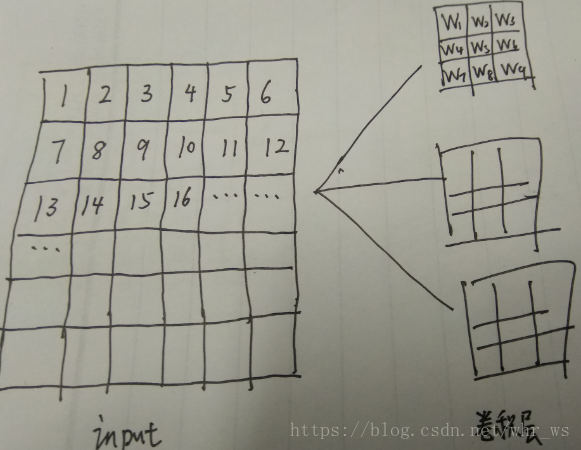 1 2 3 4 5 6
7 8 9 10 11 12
13 14 15 16 ... ...
...
W1 W2 W3
W4 W5 W6
W7 W8 W9
input
卷积层
https://blog.csdn.net/whr_ws